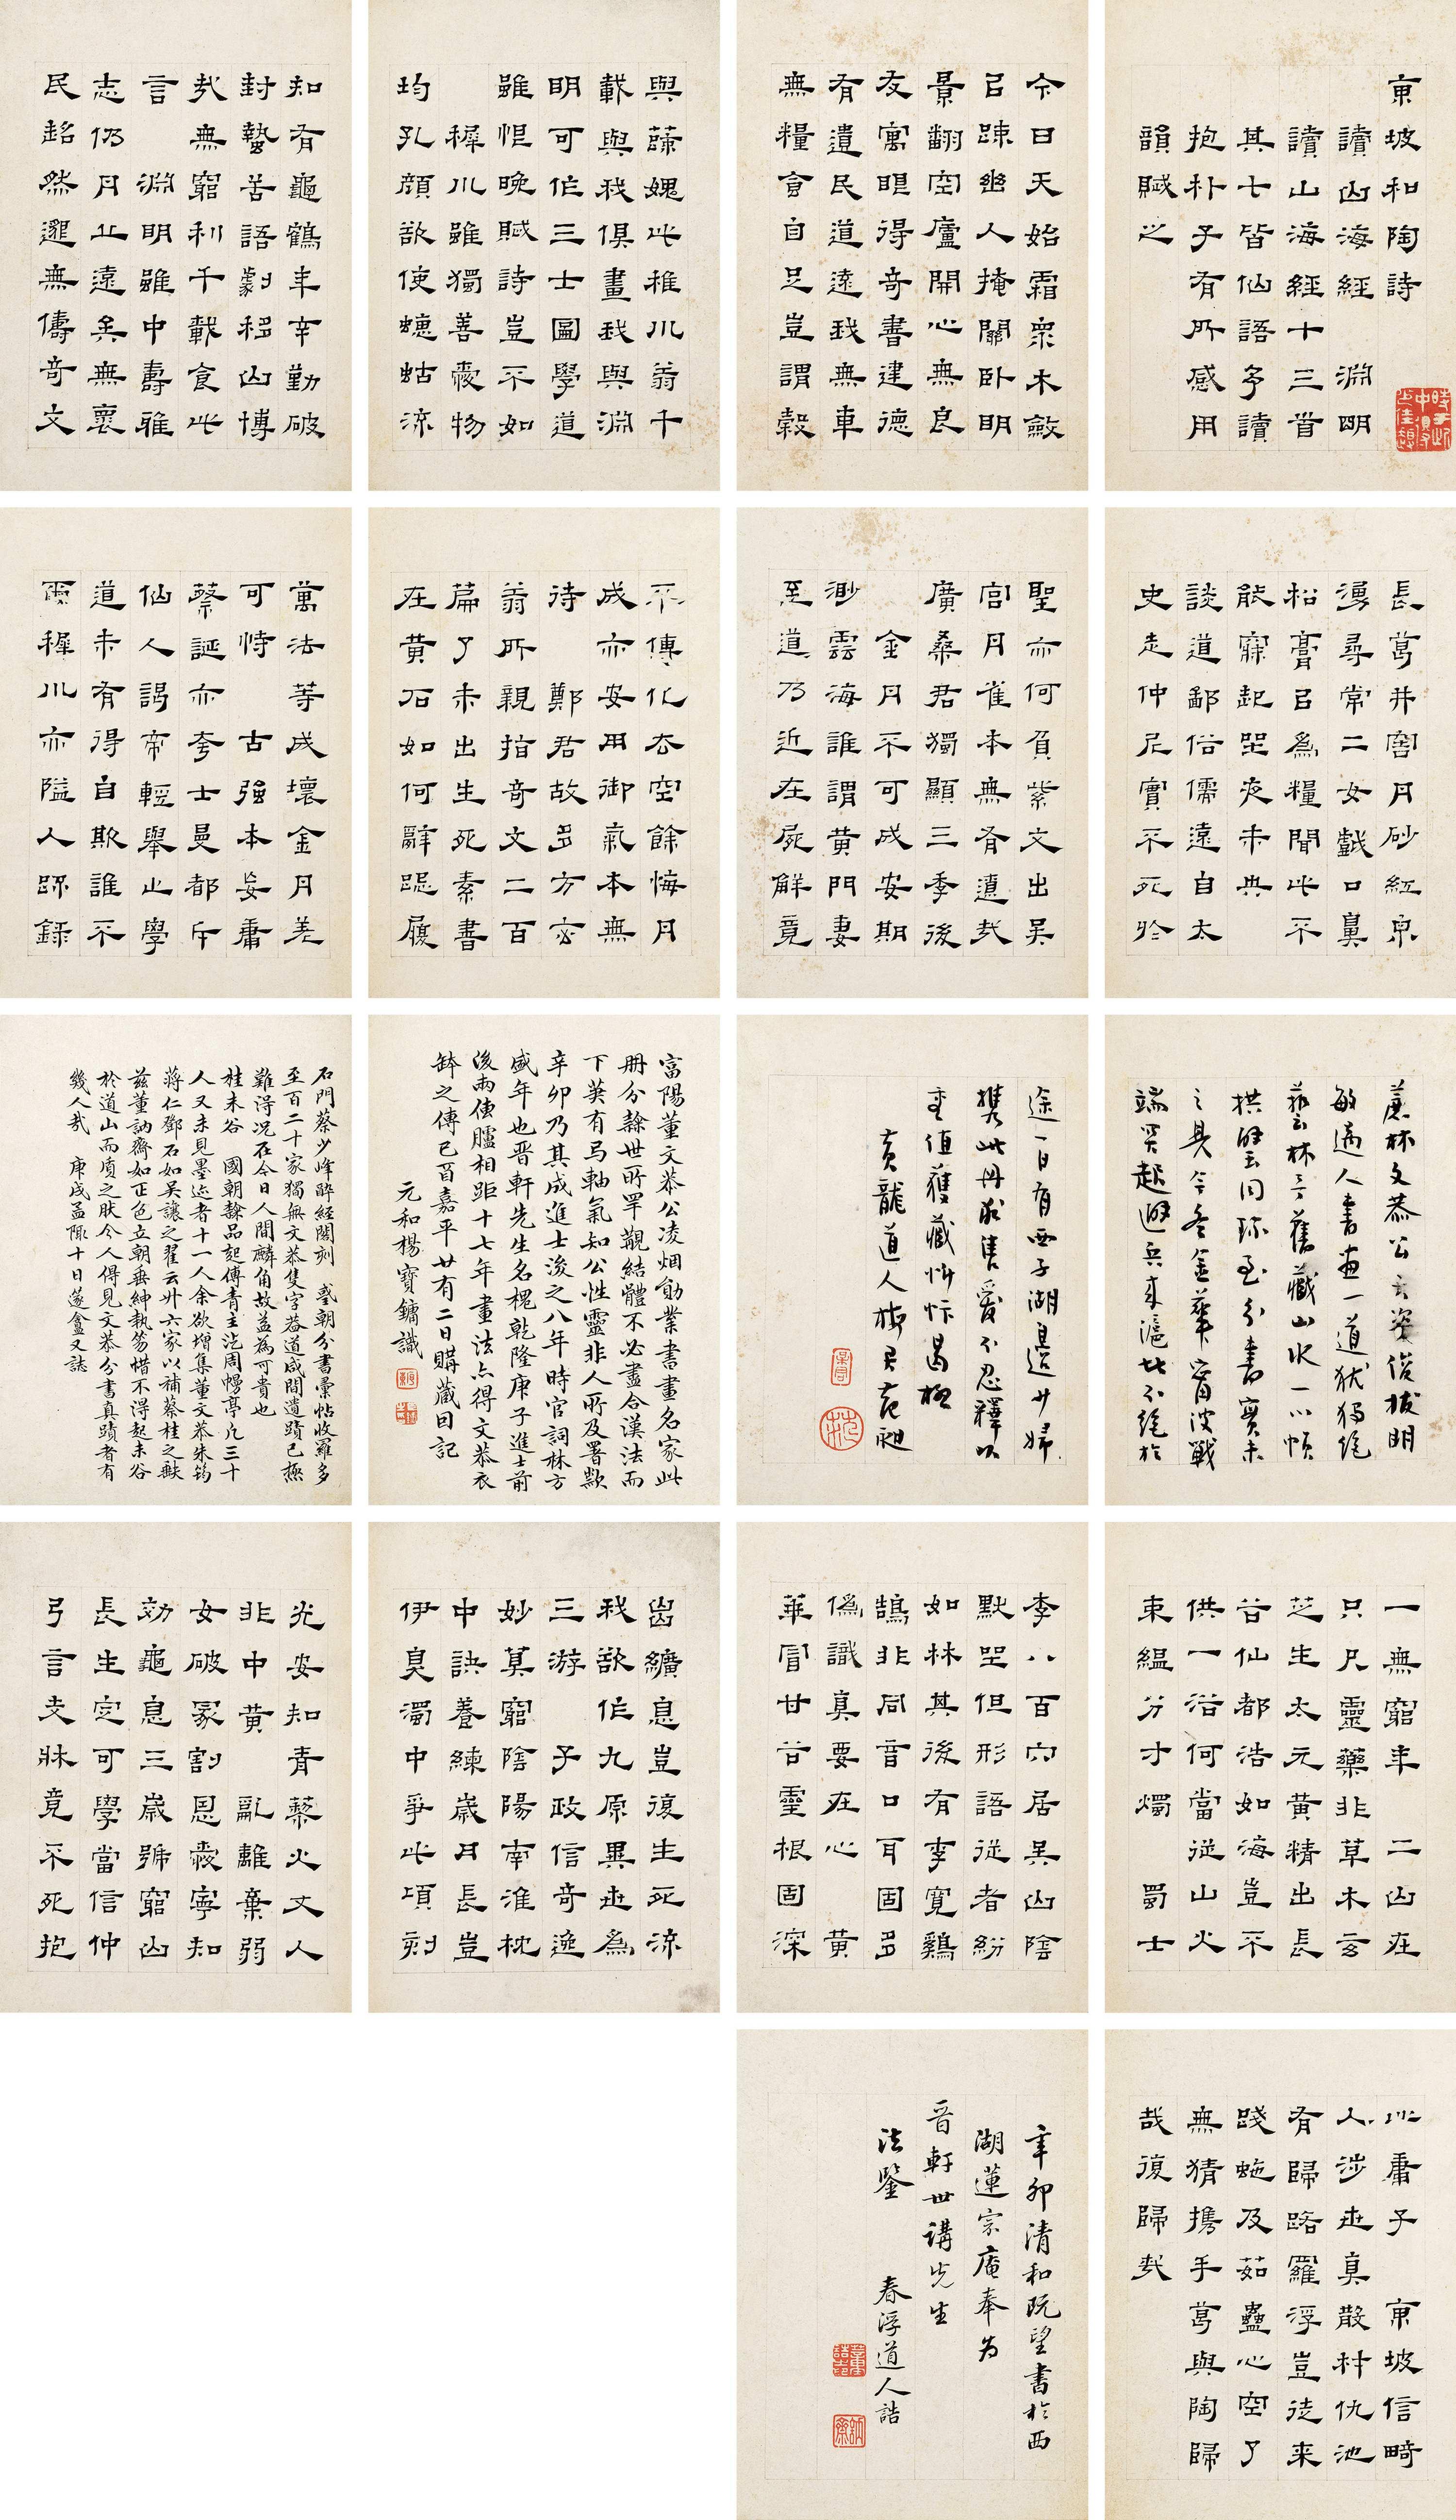 東坡和陶詩
讀山海經 淵明
讀山海經十三首
其七皆仙語予讀
抱朴子有所感用
韻賦之
今日天始霜衆木斂
㠯踈幽人掩關卧明
景翻空廬開心無良
友寓眼得奇書建德
有遺民道遠我無車
無糧食自足豈謂穀
與蔬媿此稚川翁千
載與我俱畫我與淵
明可作三士圖學道
雖恨晚賦詩豈不如
稚川雖獨善愛物
均孔顔欲使蟪蛄流
知有龜鶴年辛勤破
封蟄苦語劇移山博
哉無窮利千載食此
言 淵明雖中壽雅
志仍丹丘遠矣無懷
民超然邈無儔奇文
長葛井窖丹砂紅泉
湧尋常二女戲口鼻
松膏㠯為糧聞此不
能寐起坐夜未央
談道鄙俗儒遠自太
史走仲尼實不死於
聖亦何負紫文出吴
宫丹雀本無有遼哉
廣桑君獨顯三季後
金丹不可成安期
渺雲海誰謂黄門妻
至道乃近在尸解竟
不傳化去空餘悔丹
成亦安用御氣本無
待 鄭君故多方玄
翁所親指奇文二百
篇了未出生死素書
在黄石如何辭跽履
萬法等成壞金丹差
可恃 古强本妄庸
蔡誕亦夸士曼都斥
仙人謁帝輕舉止學
道未有得自欺誰不
爾稚川亦隘人踈録
蔗林文恭公天姿俊拔明
敏過人書画一道猶獨絶
藝林予舊藏山水一小幀
拱璧同珍至分書實未
之見今冬金華甯波戰
端突起避兵来滬此不絶於
途一日有西子湖邊少婦
携此册求售愛不忍釋以
重值獲藏忻忭曷極
黄龍道人
富陽董文恭公凌烟勛業書畫名家此
册分隸世所罕覯結體不必盡合漢法而
下筆有軸氣知公性靈非人所及署款
辛卯乃其成進士後之八年時官詞林方
盛年也晋軒先生名槐乾隆庚子進士前
後兩傳臚相距十七年畫法亦得文恭衣
鉢之傳已酉嘉平廿有二日購藏因記
元和楊寶鏞識
石門蔡少峰醉經閣刻 聖朝分書彙帖收羅多
至百二十家獨無文恭隻字蓋道咸間遺蹟已極
難得况在今日人間麟角故益為可貴也
桂未谷 國朝隸品起傅青主迄周幔亭凡三十
人又未見墨迹者十一人余欲增集董文恭朱筠
蔣仁鄧石如吴讓之翟云升六家以補蔡桂之缺
兹董訥齋如正色立朝垂紳執笏惜不得起未谷
於道山而質之肰今人得見文恭分書真蹟者有
幾人哉 庚戌孟陬十日蓬盦又誌
一無窮年 二山在
只尺靈藥非草木玄
芝生太元黄精出長
谷仙都浩如海豈不
供一浴何當從山火
束緼分寸燭 蜀士
李八百穴居吴山陰
默坐但形語從者紛
如林其後有李寬鷄
鵠非同音口耳固多
偽識真要在心 黄
華冒甘谷靈根固深
齒纊息豈復生死流
我欲作九原異世為
三游 子政信奇逸
妙莫窮陰陽南淮枕
中訣養練歲月長豈
伊臭濁中爭此頃刻
光安知青藜火丈人
非中黄 亂離棄弱
女破冢割恩愛寧知
効龜息三歲號窮山
長生定可學當信仲
弓言支牀竟不死抱
庸子 東坡信畸
人涉世真散材仇池
有歸路羅浮豈徒来
踐蛇及茹蠱心空了
無猜携手葛與陶歸
哉復歸哉
辛卯清和既望書於西
湖蓮宗庵奉為
晋軒世講先生
法鑒 春浮道人誥